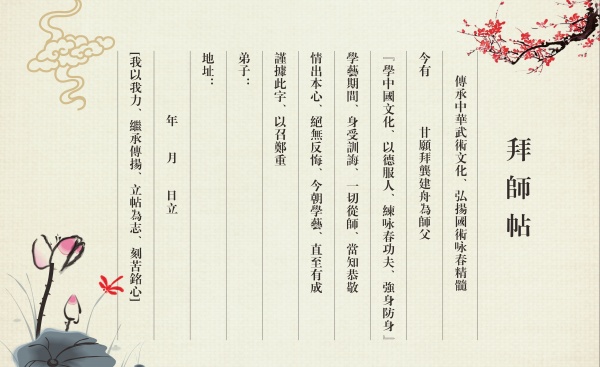 拜師帖
傳承中華武術文化、弘揚國術咏春精髓
今有　　　甘願拜龔建舟為師父
『學中國文化、以德服人、練咏春功夫、強身防身』
學藝期間、身受訓誨、一切從師、當知恭敬
情出本心、絕無反悔、今朝學藝、直至有成
謹據此字、以召鄭重
弟子：
地址：
年　月　日立
[我以我力、繼承傳揚、立帖為志、刻苦銘心]